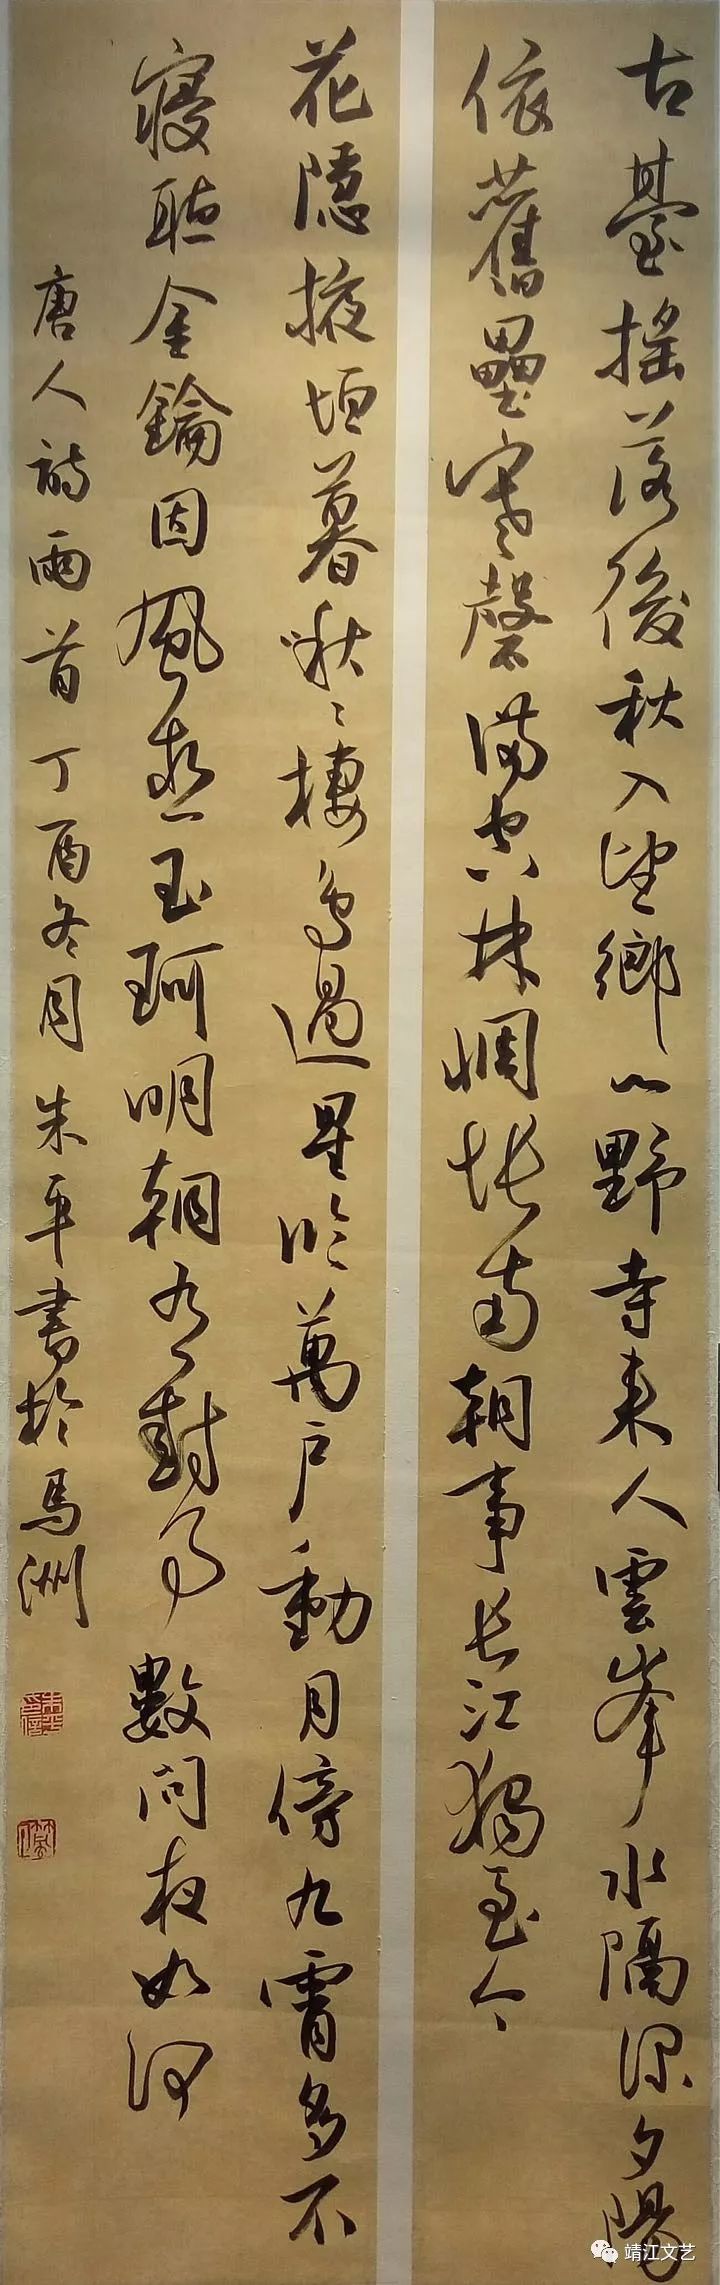 古臺搖落後秋入望鄉心野寺來人雲峯水隔深夕陽
依舊壘寒磬滿空林惆悵南朝事長江獨至今
花隱掖垣暮啾々棲鳥過星臨萬戶動月傍九霄多不
寢聽金鑰因風想玉珂明朝有封事數問夜如何
唐人詩兩首丁酉冬月朱平書於馬洲
靖江文艺